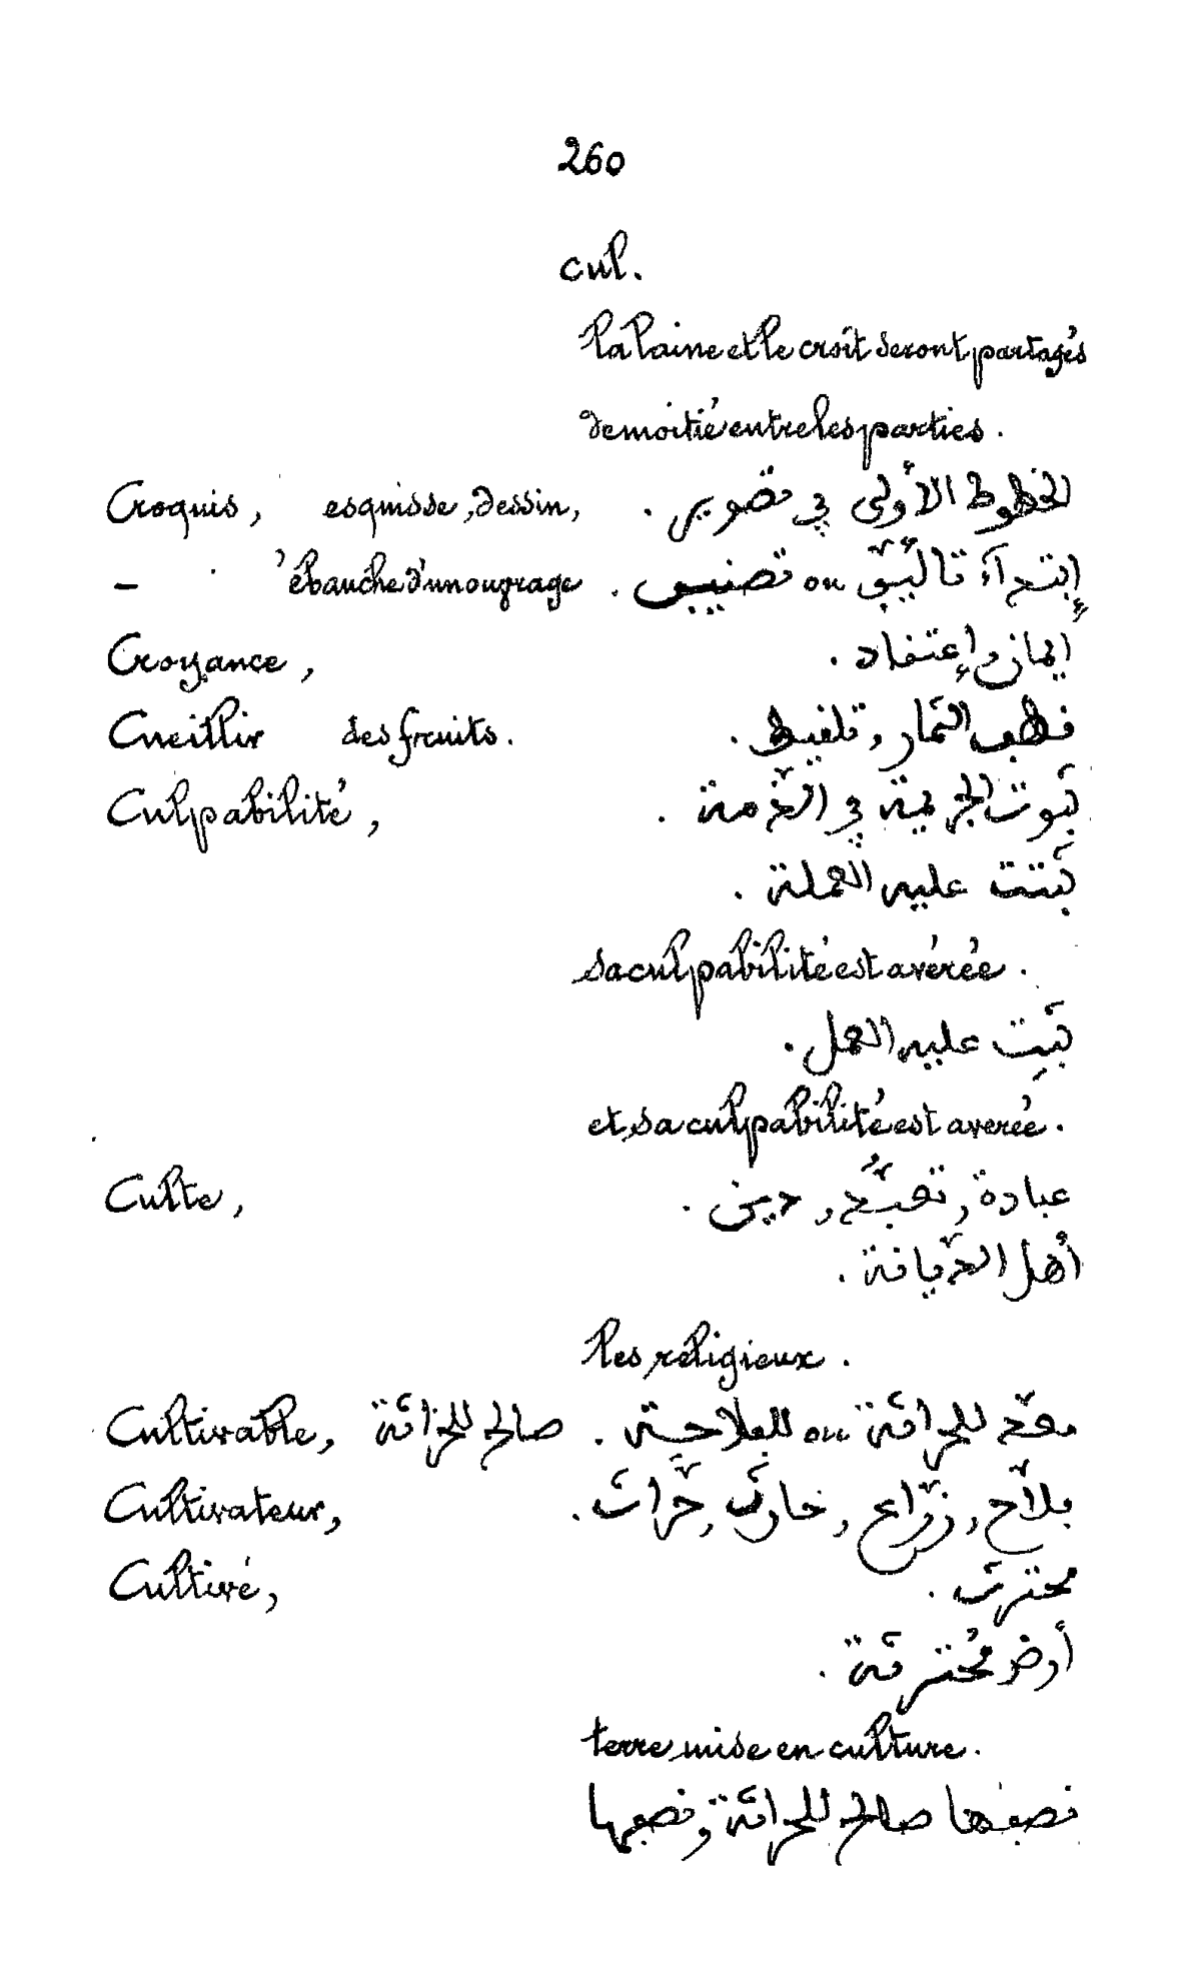 260
cul.
la laine et le croît seront partagés
de moitié entre les parties.
Croquis, esquisse, dessin, الخطوط الأولى في تصوير .
— ébauche d'un ouvrage إبتدآء تأليف ou تصنيف .
Croyance, إيمان وإعتقاد .
Cueillir des fruits. قطف الثمار, تلقيط .
Culpabilité, ثبوت الجريمة في الذّمة .
ثبتت عليه العملة .
sa culpabilité est avérée .
ثبت عليه العمل .
et, sa culpabilité est averée .
Culte, عبادة, تعبّد, دين .
أهل الدّيانة .
les religieux .
Cultivable, صالح للحراثة . معدّ للحراثة ou للفلاحة
Cultivateur, فلاّح, زرّاع, حارث, حرّاث .
Cultivé, محترث .
أرض محترثة .
terre mise en culture .
نصفها صالح للحراثة ونصفها